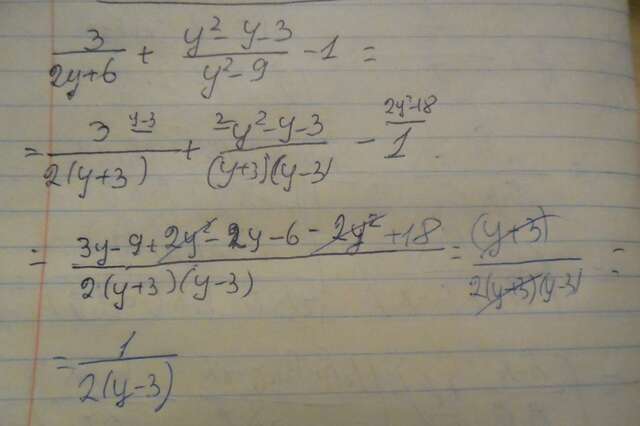 3/(2y+6) + (y²-y-3)/(y²-9) - 1 =
= 3^(y-3)/(2(y+3)) + ²y²-y-3/((y+3)(y-3)) - ^(2y²-18)/1
= (3y-9+2y²-2y-6-2y²+18)/(2(y+3)(y-3)) = (y+3)/(2(y+3)(y-3)) =
= 1/(2(y-3))